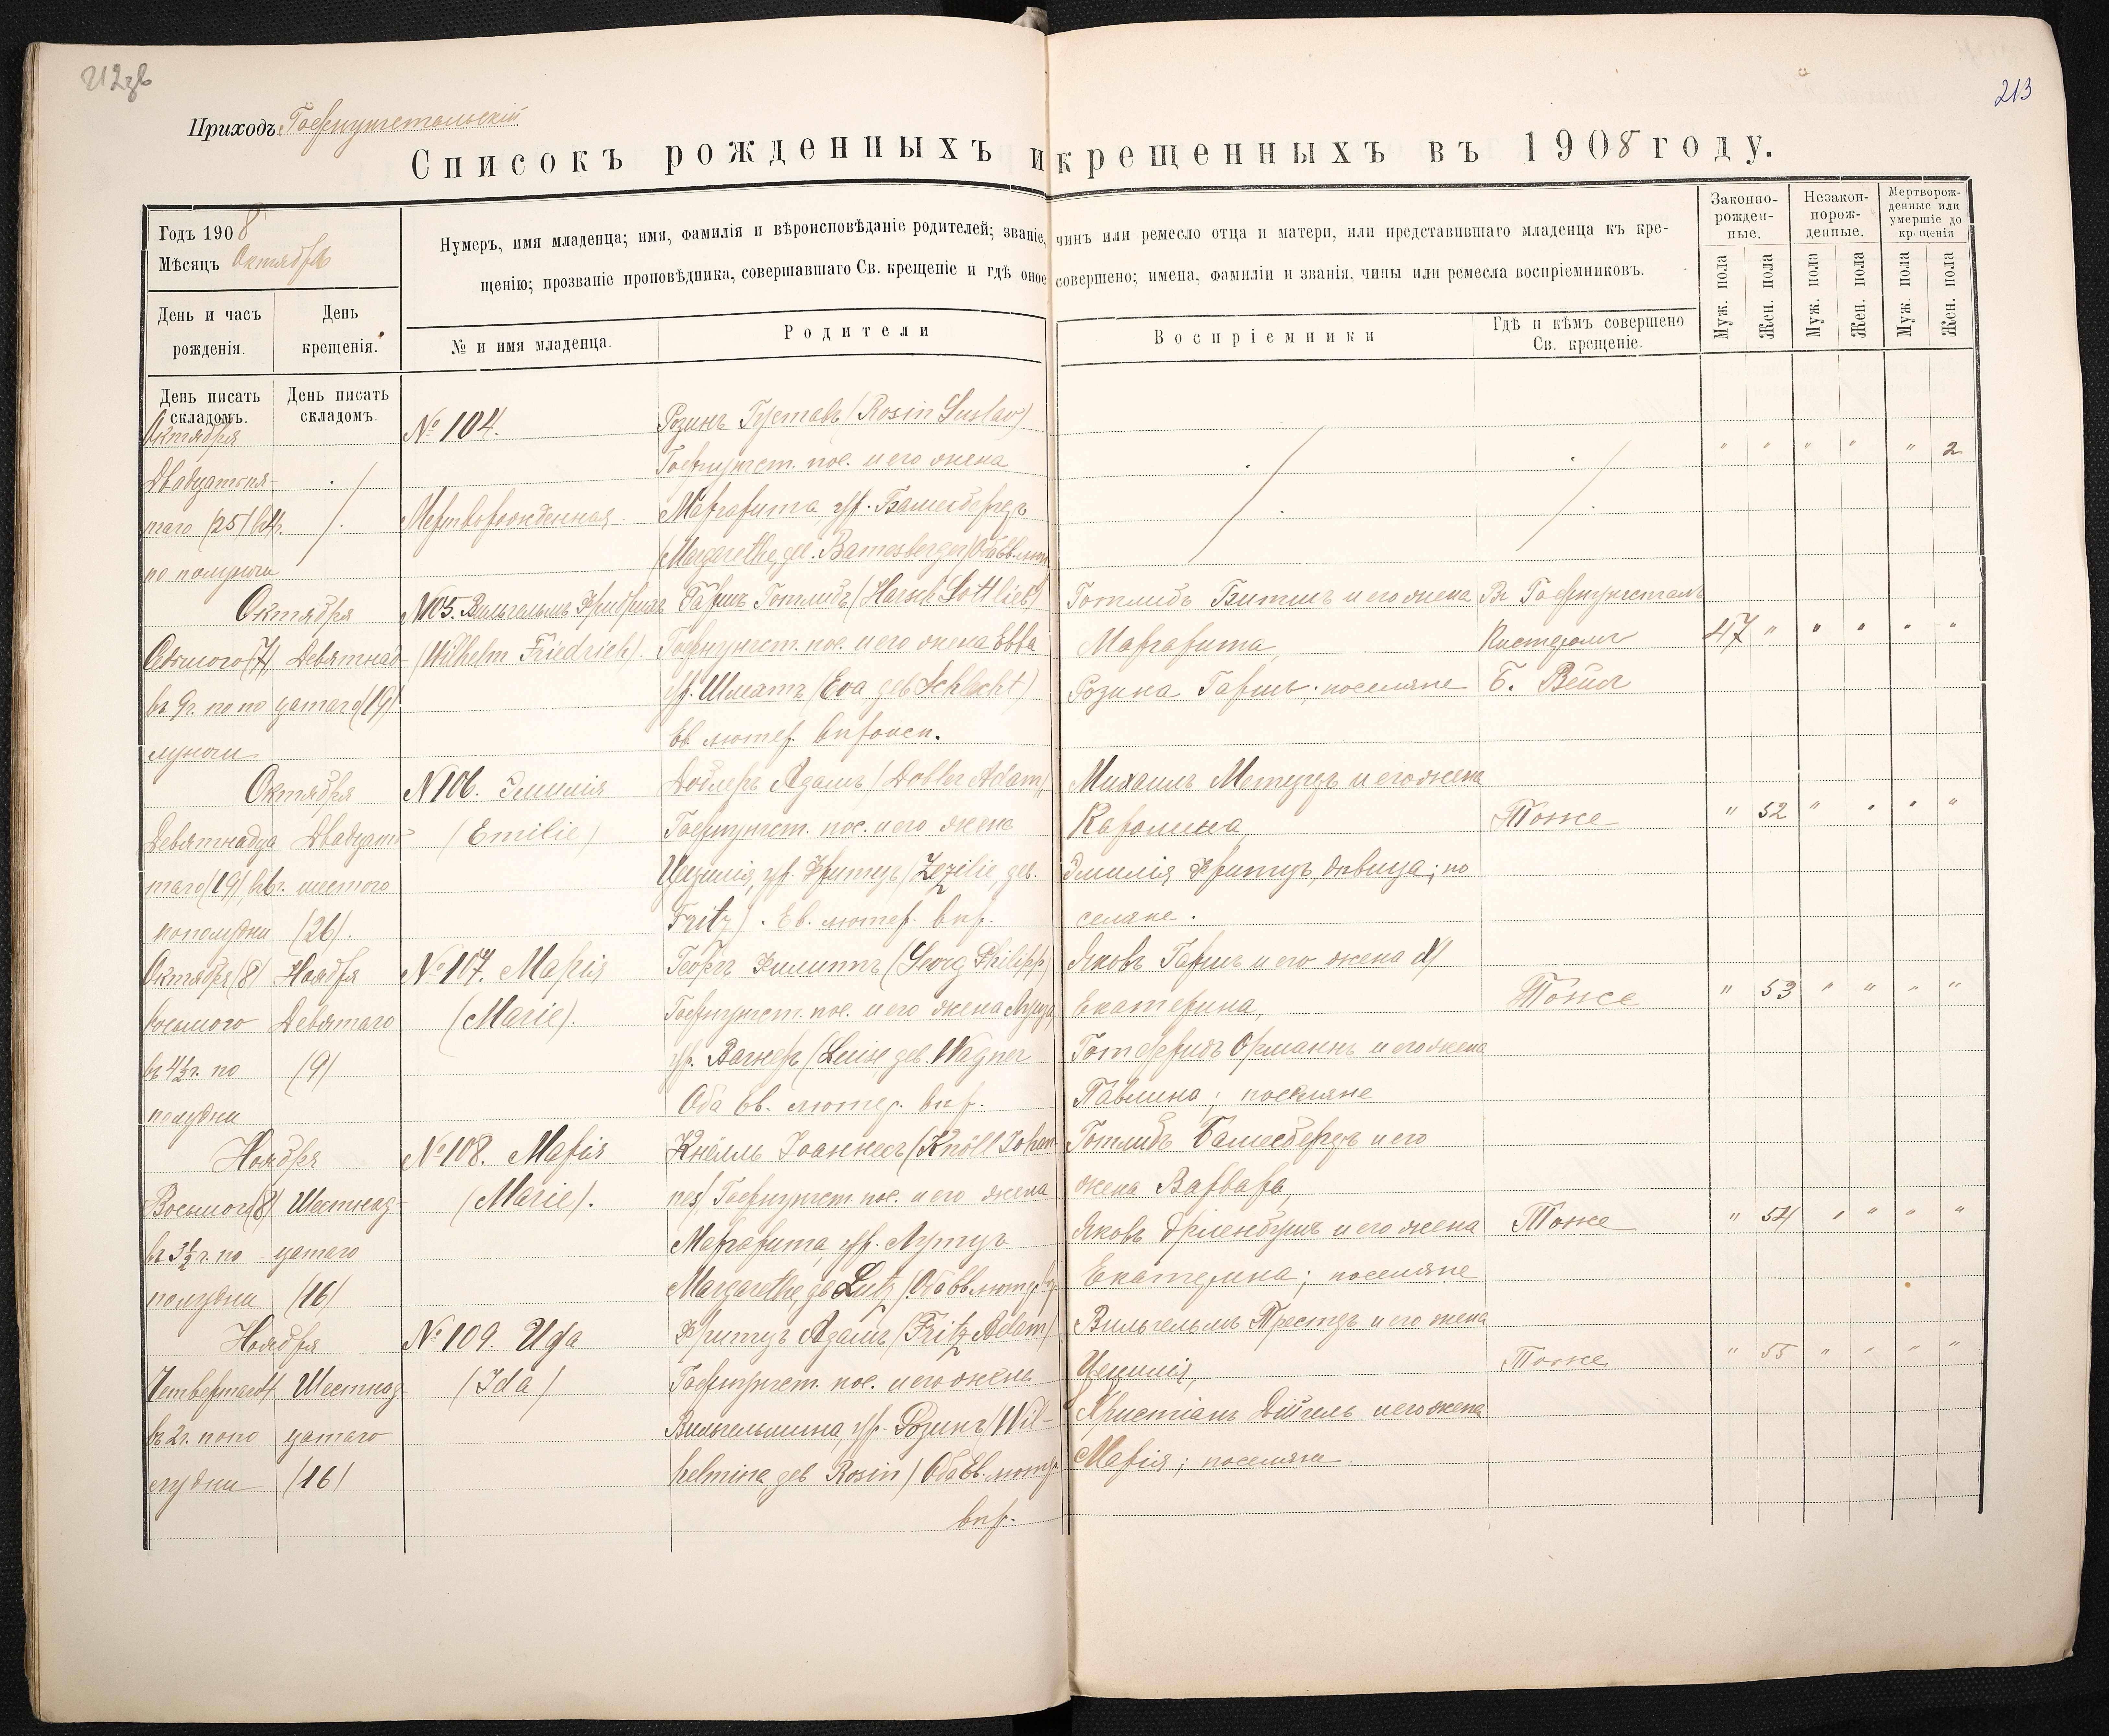 213
Приходъ: Гофнунгстальскій
Списокъ рожденныхъ и крещенныхъ въ 1908 году.
Годъ 1908
Мѣсяцъ Октябрь
День и часъ рожденія.
День крещенія.
Нумеръ, имя младенца; имя, фамилія и вѣроисповѣданіе родителей; званіе, чинъ или ремесло отца и матери, или представившаго младенца къ кре-
щенію; прозваніе проповѣдника, совершавшаго Св. крещеніе и гдѣ оное совершено; имена, фамиліи и званія, чины или ремесла воспріемниковъ.
№ и имя младенца.
Родители
Воспріемники
Гдѣ и кѣмъ совершено
Св. крещеніе.
Законно-
рожден-
ные.
Незакон-
норож-
денные.
Мертворож-
денные или
умершіе до
крещенія
Муж. пола
Жен. пола
Муж. пола
Жен. пола
Муж. пола
Жен. пола
День писать
складомъ.
День писать
складомъ.
Октября
Двадцатпя-
таго (25) в 4 ч.
по полуночи
№ 104.
Мертворожденная
Розинъ Густавъ (Rosin Gustav)
Гофнунгст. пос. и его жена
Маргарита, ур. Бамесбергеръ
(Margarethe, geb. Bamesberger) Оба Ев. лют.
" " " " " 2
Октября
Седьмого (7)
въ 9 ч. по по
луночи
Девятнад-
цатаго (19)
№ 105. Вильгельмъ Фридрихъ
(Wilhelm Friedrich).
Гаршъ Готлибъ (Harsch Gottlieb)
Гофнунгст. пос. и его жена Евва
ур. Шлехтъ (Eva geb Schlecht)
Ев. лютер. вѣроисп.
Готлибъ Битшъ и его жена
Маргарита,
Розина Гаршъ; поселяне
Въ Гофнунгсталѣ
Кистеромъ
Б. Вейс
47 " " " " "
Октября
Девятнадца
таго (19), в 6 ч.
пополудни
Двадцать
шестого
(26).
№ 106. Эмилія
(Emilie)
Доблеръ Адамъ (Dobler Adam),
Гофнунгст. пос. и его жена
Цецилія, ур. Фритцъ (Zezilie, geb.
Fritz). Ев. лютер. вѣр.
Михаилъ Метцгеръ и его жена
Каролина,
Эмилія Фритцъ, дѣвица; по
селяне.
Тоже
" 52 " " " "
Октября (8)
восьмого
въ 4½ ч. по
полудни
Ноября
Девятаго
(9)
№ 107. Марія
(Marie).
Георгъ Филиппъ (Georg Philipp)
Гофнунгст. пос. и его жена Луиза,
ур. Вагнеръ (Luise, geb. Wagner
Оба Ев. лютер. вѣр.
Яковъ Гаршъ и его жена
Екатерина,
Готфридъ Ортманнъ и его жена
Павлина; поселяне
Тоже
" 53 " " " "
Ноября
Восьмого (8)
въ 3½ ч. по
полудни
Шестнад-
цатаго
(16)
№ 108. Марія
(Marie).
Кнёлль Іоаннесъ (Knöll Johan-
nes) Гофнунгст. пос. и его жена
Маргарита, ур. Лутцъ
Margarethe, geb Lutz). Оба Ев. лютер. вѣр.
Готлибъ Бамесбергеръ и его
жена Варвара,
Яковъ Эрленбушъ и его жена
Екатерина; поселяне
Тоже
" 54 " " " "
Ноября
Четвертаго 4
въ 2 ч. попо
лудни
Шестнад
цатаго
(16)
№ 109. Ида
(Ida)
Фритцъ Адамъ (Fritz Adam)
Гофнунгст. пос. и его жена
Вильгельмина, ур. Розинъ (Wil-
helmine, geb Rosin) Оба Ев. лютер.
вѣр.
Вильгельмъ Трестеръ и его жена
Цецилія,
Христіанъ Дигель и его жена
Марія; поселяне
Тоже
" 55 " " " "